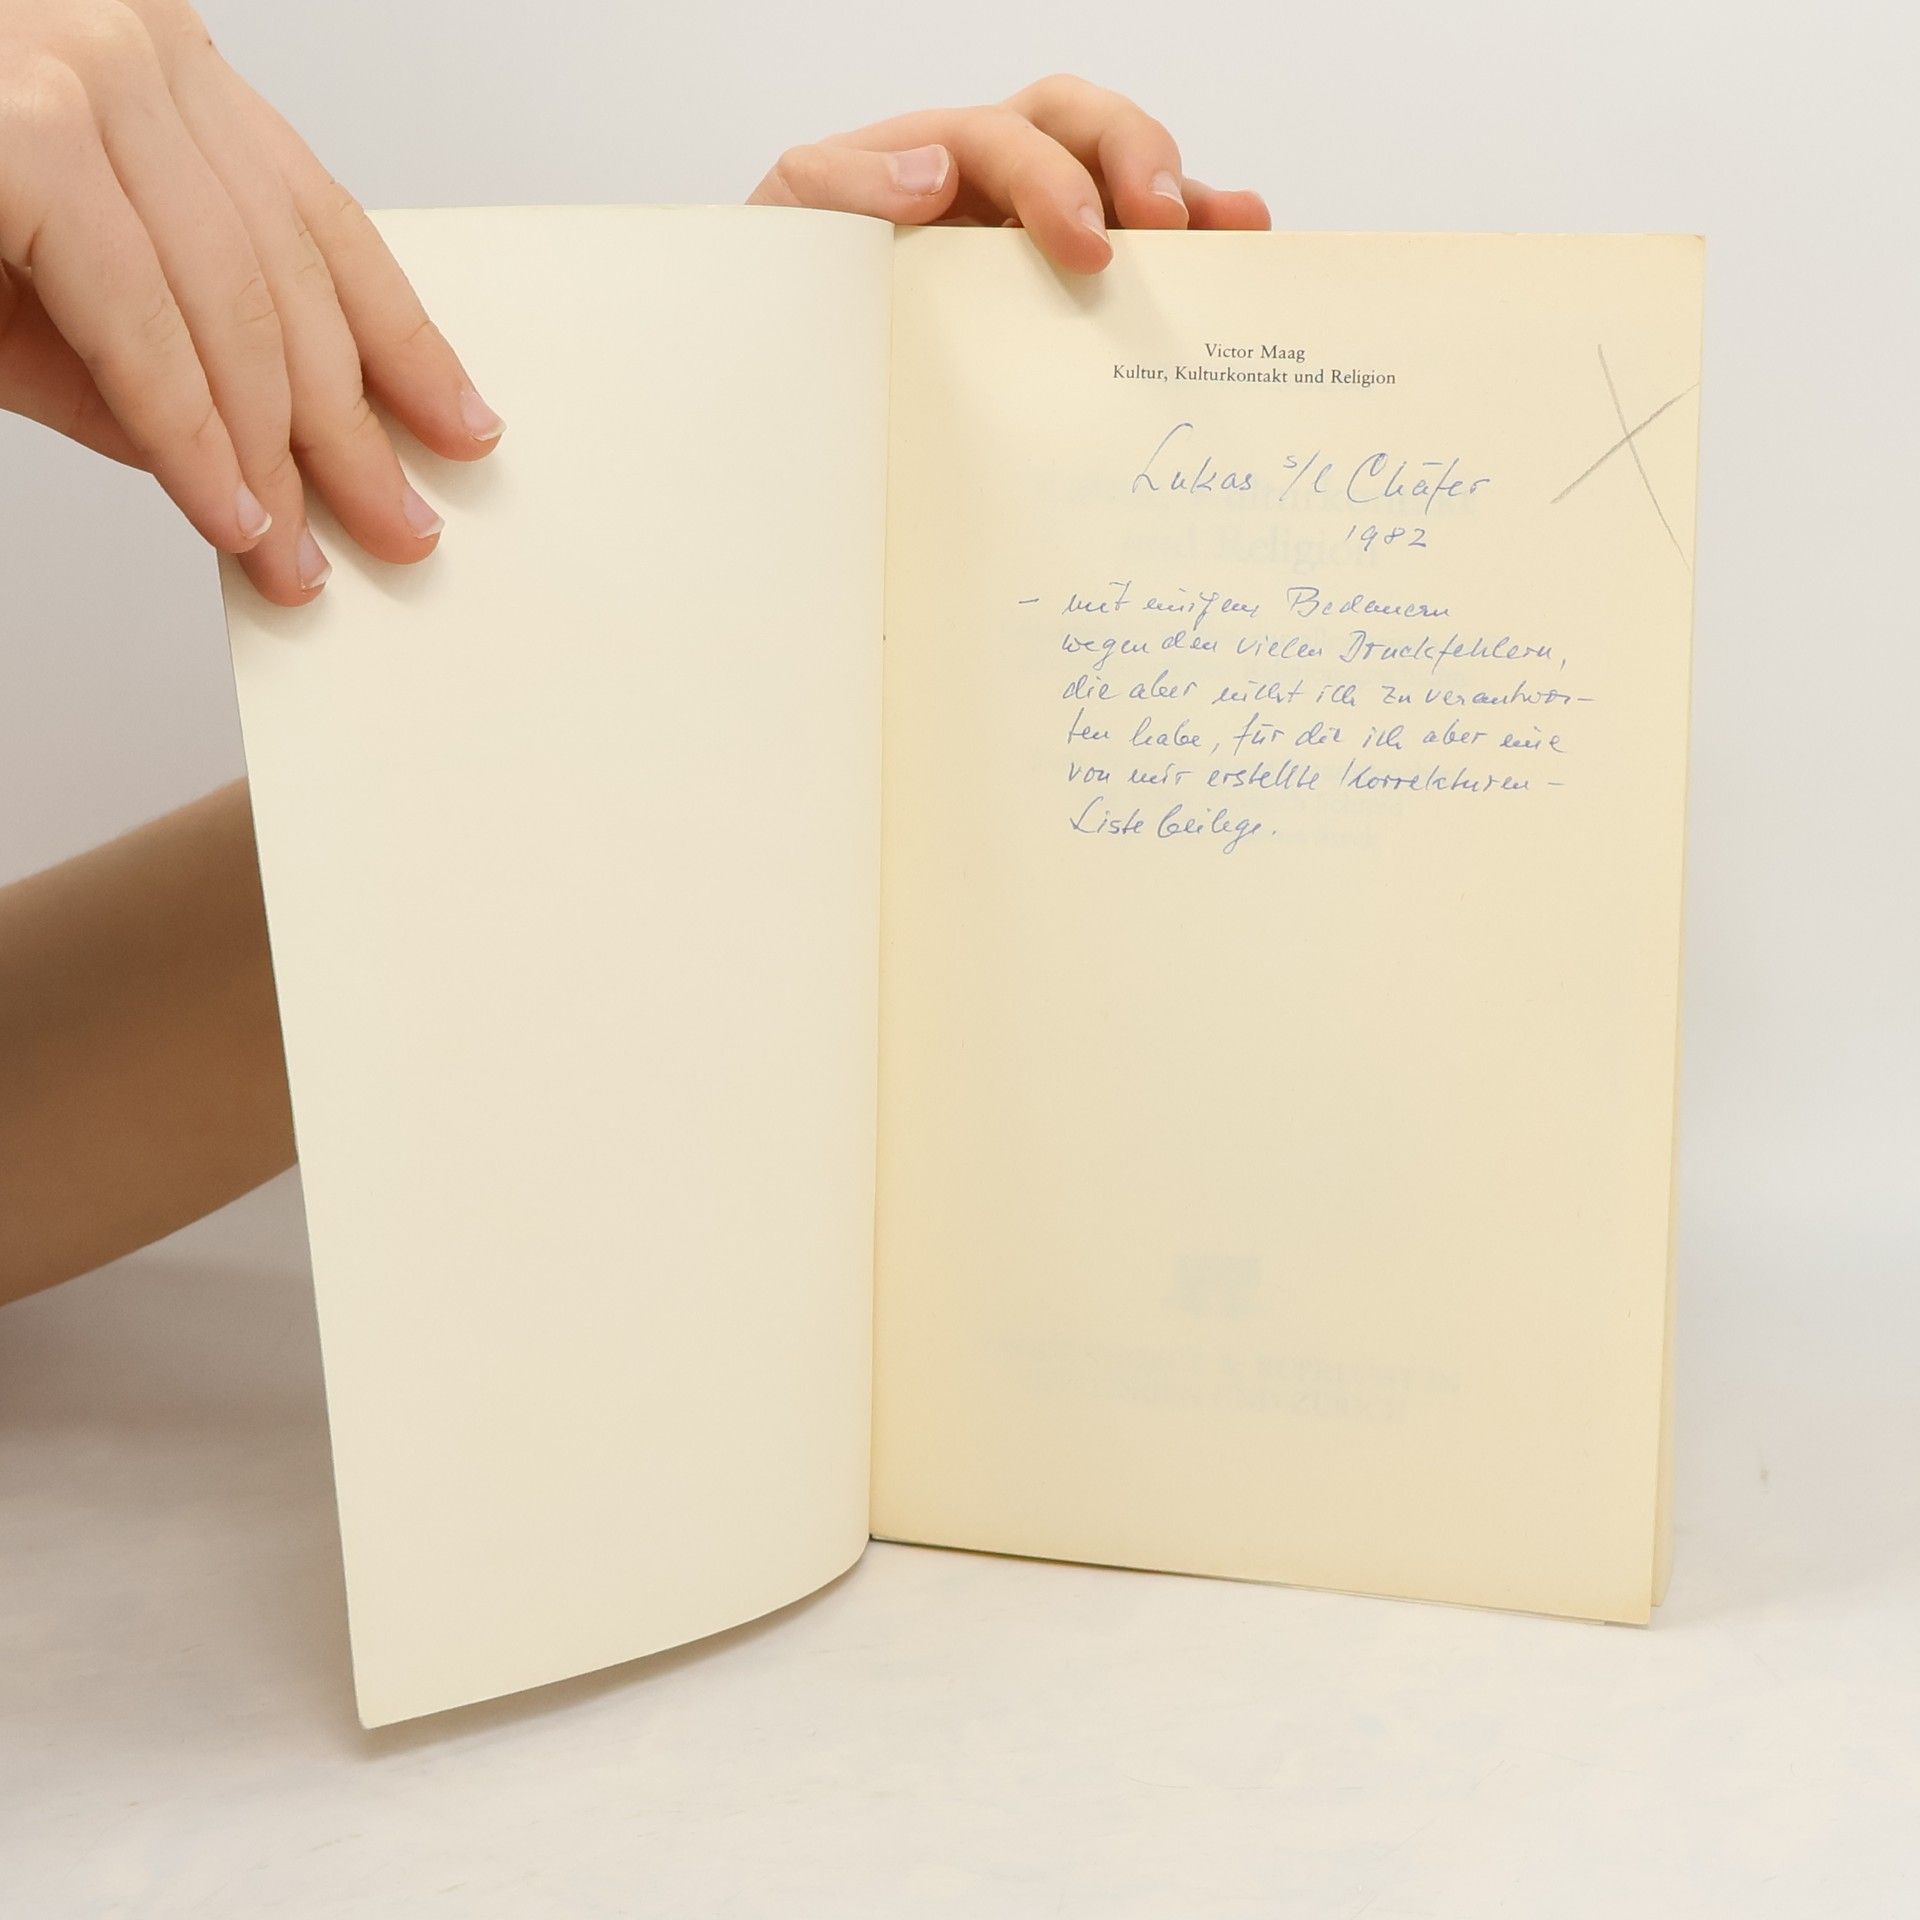 Victor Maag
Kultur, Kulturkontakt und Religion
Lukas s/l Chäfer
1982
– mit einigem Bedauern
wegen den vielen Druckfehlern,
die aber nicht ich zu verantwor-
ten habe, für die ich aber eine
von mir erstellte Korrekturen-
Liste beilege.